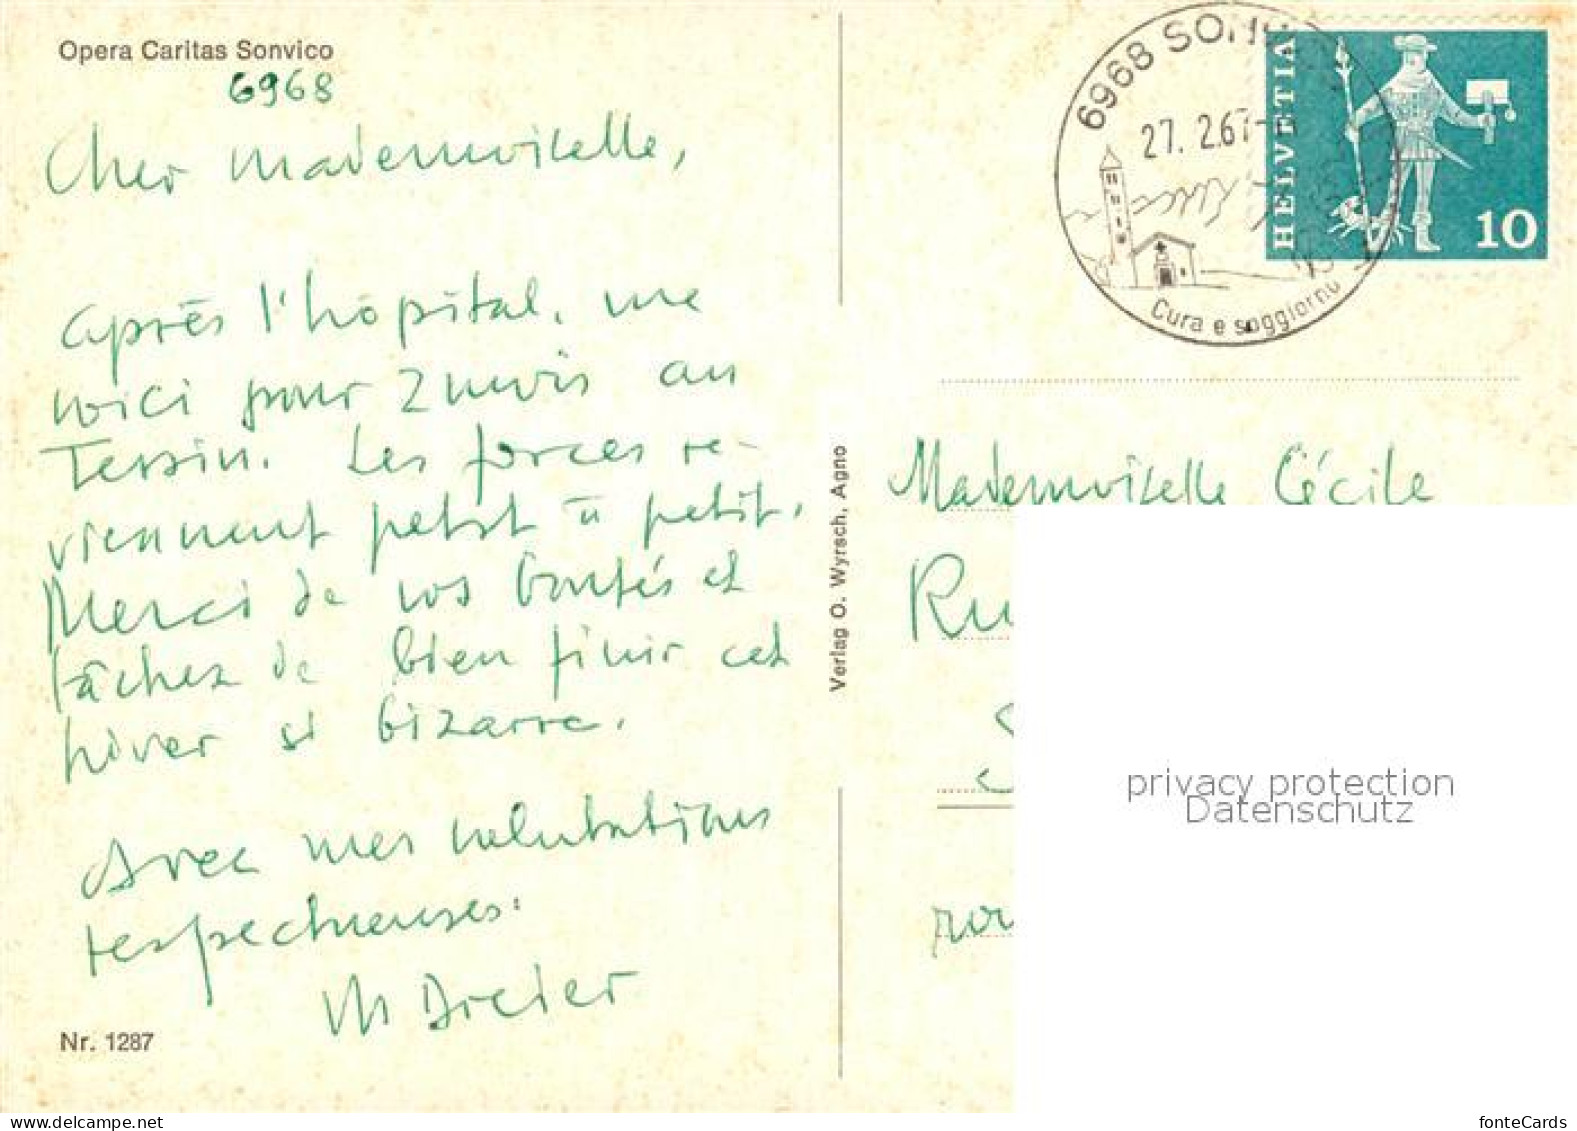 Opera Caritas Sonvico
6968
Cher Mademoiselle,
après l'hôpital, me
voici pour 2 mois au
Tessin. Les forces re-
viennent petit à petit.
Merci de vos bontés et
tâchez de bien finir cet
hiver si bizarre.
Avec mes salutations
respectueuses:
Dreier
Nr. 1287
Verlag O. Wyrsch, Agno
6968 SONV
27. 2.67
Cura e soggiorno
HELVETIA
10
Mademoiselle Cécile
Ru
privacy protection
Datenschutz
fonteCards